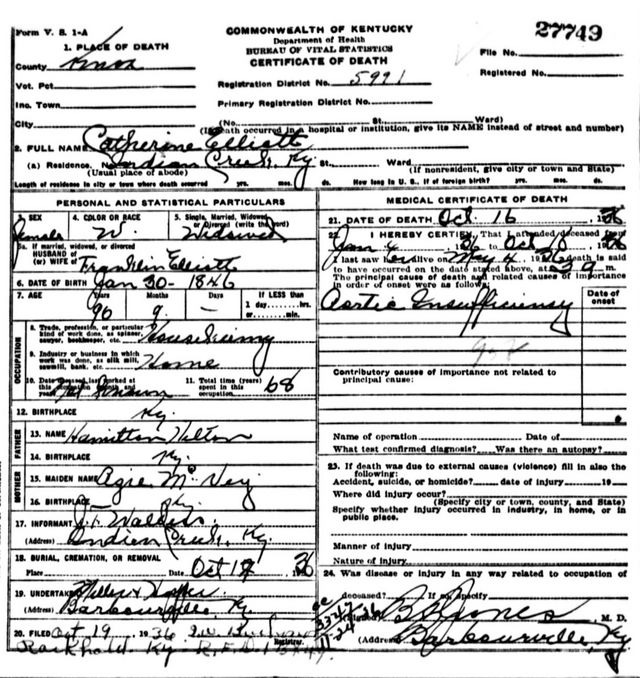 Form V. S. 1-A
COMMONWEALTH OF KENTUCKY
Department of Health
BUREAU OF VITAL STATISTICS
CERTIFICATE OF DEATH
27749
File No.
Registered No.
1. PLACE OF DEATH
County Knox
Vot. Pct.
Inc. Town
City
Registration District No. 5991
Primary Registration District No.
(No. St. Ward)
(If death occurred in a hospital or institution, give its NAME instead of street and number)
2. FULL NAME Catherine Elliott
(a) Residence. Indian Creek, Ky St. Ward
(Usual place of abode) (If nonresident, give city or town and State)
Length of residence in city or town where death occurred yrs. mos. ds. How long in U. S., if of foreign birth? yrs. mos. ds.
PERSONAL AND STATISTICAL PARTICULARS
3. SEX 4. COLOR OR RACE 5. Single, Married, Widowed, or Divorced (write the word)
Female W. Widowed
5a. If married, widowed, or divorced
HUSBAND of
(or) WIFE of Franklin Elliott
6. DATE OF BIRTH Jan 30- 1846
7. AGE Years Months Days If LESS than
1 day hrs.
or min.
90 9 -
OCCUPATION
8. Trade, profession, or particular
kind of work done, as spinner,
sawyer, bookkeeper, etc.
9. Industry or business in which
work was done, as silk mill,
sawmill, bank, etc. Home
10. Date deceased last worked at
this occupation (month and
year)
11. Total time (years)
spent in this
occupation 68
12. BIRTHPLACE Ky.
FATHER
13. NAME Hamilton
14. BIRTHPLACE Ky.
MOTHER
15. MAIDEN NAME Agie McVey
16. BIRTHPLACE Ky.
17. INFORMANT
(Address) Indian Creek, Ky.
18. BURIAL, CREMATION, OR REMOVAL
Place Date Oct 1936
19. UNDERTAKER
(Address) Barbourville, Ky
20. FILED Oct 19 1936 Registrar.
Rockhold Ky. R.F.D.
MEDICAL CERTIFICATE OF DEATH
21. DATE OF DEATH Oct. 16 1936
22. I HEREBY CERTIFY, That I attended deceased from
Jan 4 1936 to Oct 1936
I last saw her alive on May 4 1936 death is said
to have occurred on the date stated above, at m.
The principal cause of death and related causes of importance
in order of onset were as follows:
Date of
onset
Aortic Insufficiency
Contributory causes of importance not related to
principal cause:
Name of operation Date of
What test confirmed diagnosis? Was there an autopsy?
23. If death was due to external causes (violence) fill in also the
following:
Accident, suicide, or homicide? date of injury 19
Where did injury occur?
(Specify city or town, county, and State)
Specify whether injury occurred in industry, in home, or in
public place.
Manner of injury
Nature of injury
24. Was disease or injury in any way related to occupation of
deceased? If so, specify
M. D.
(Address) Barbourville, Ky